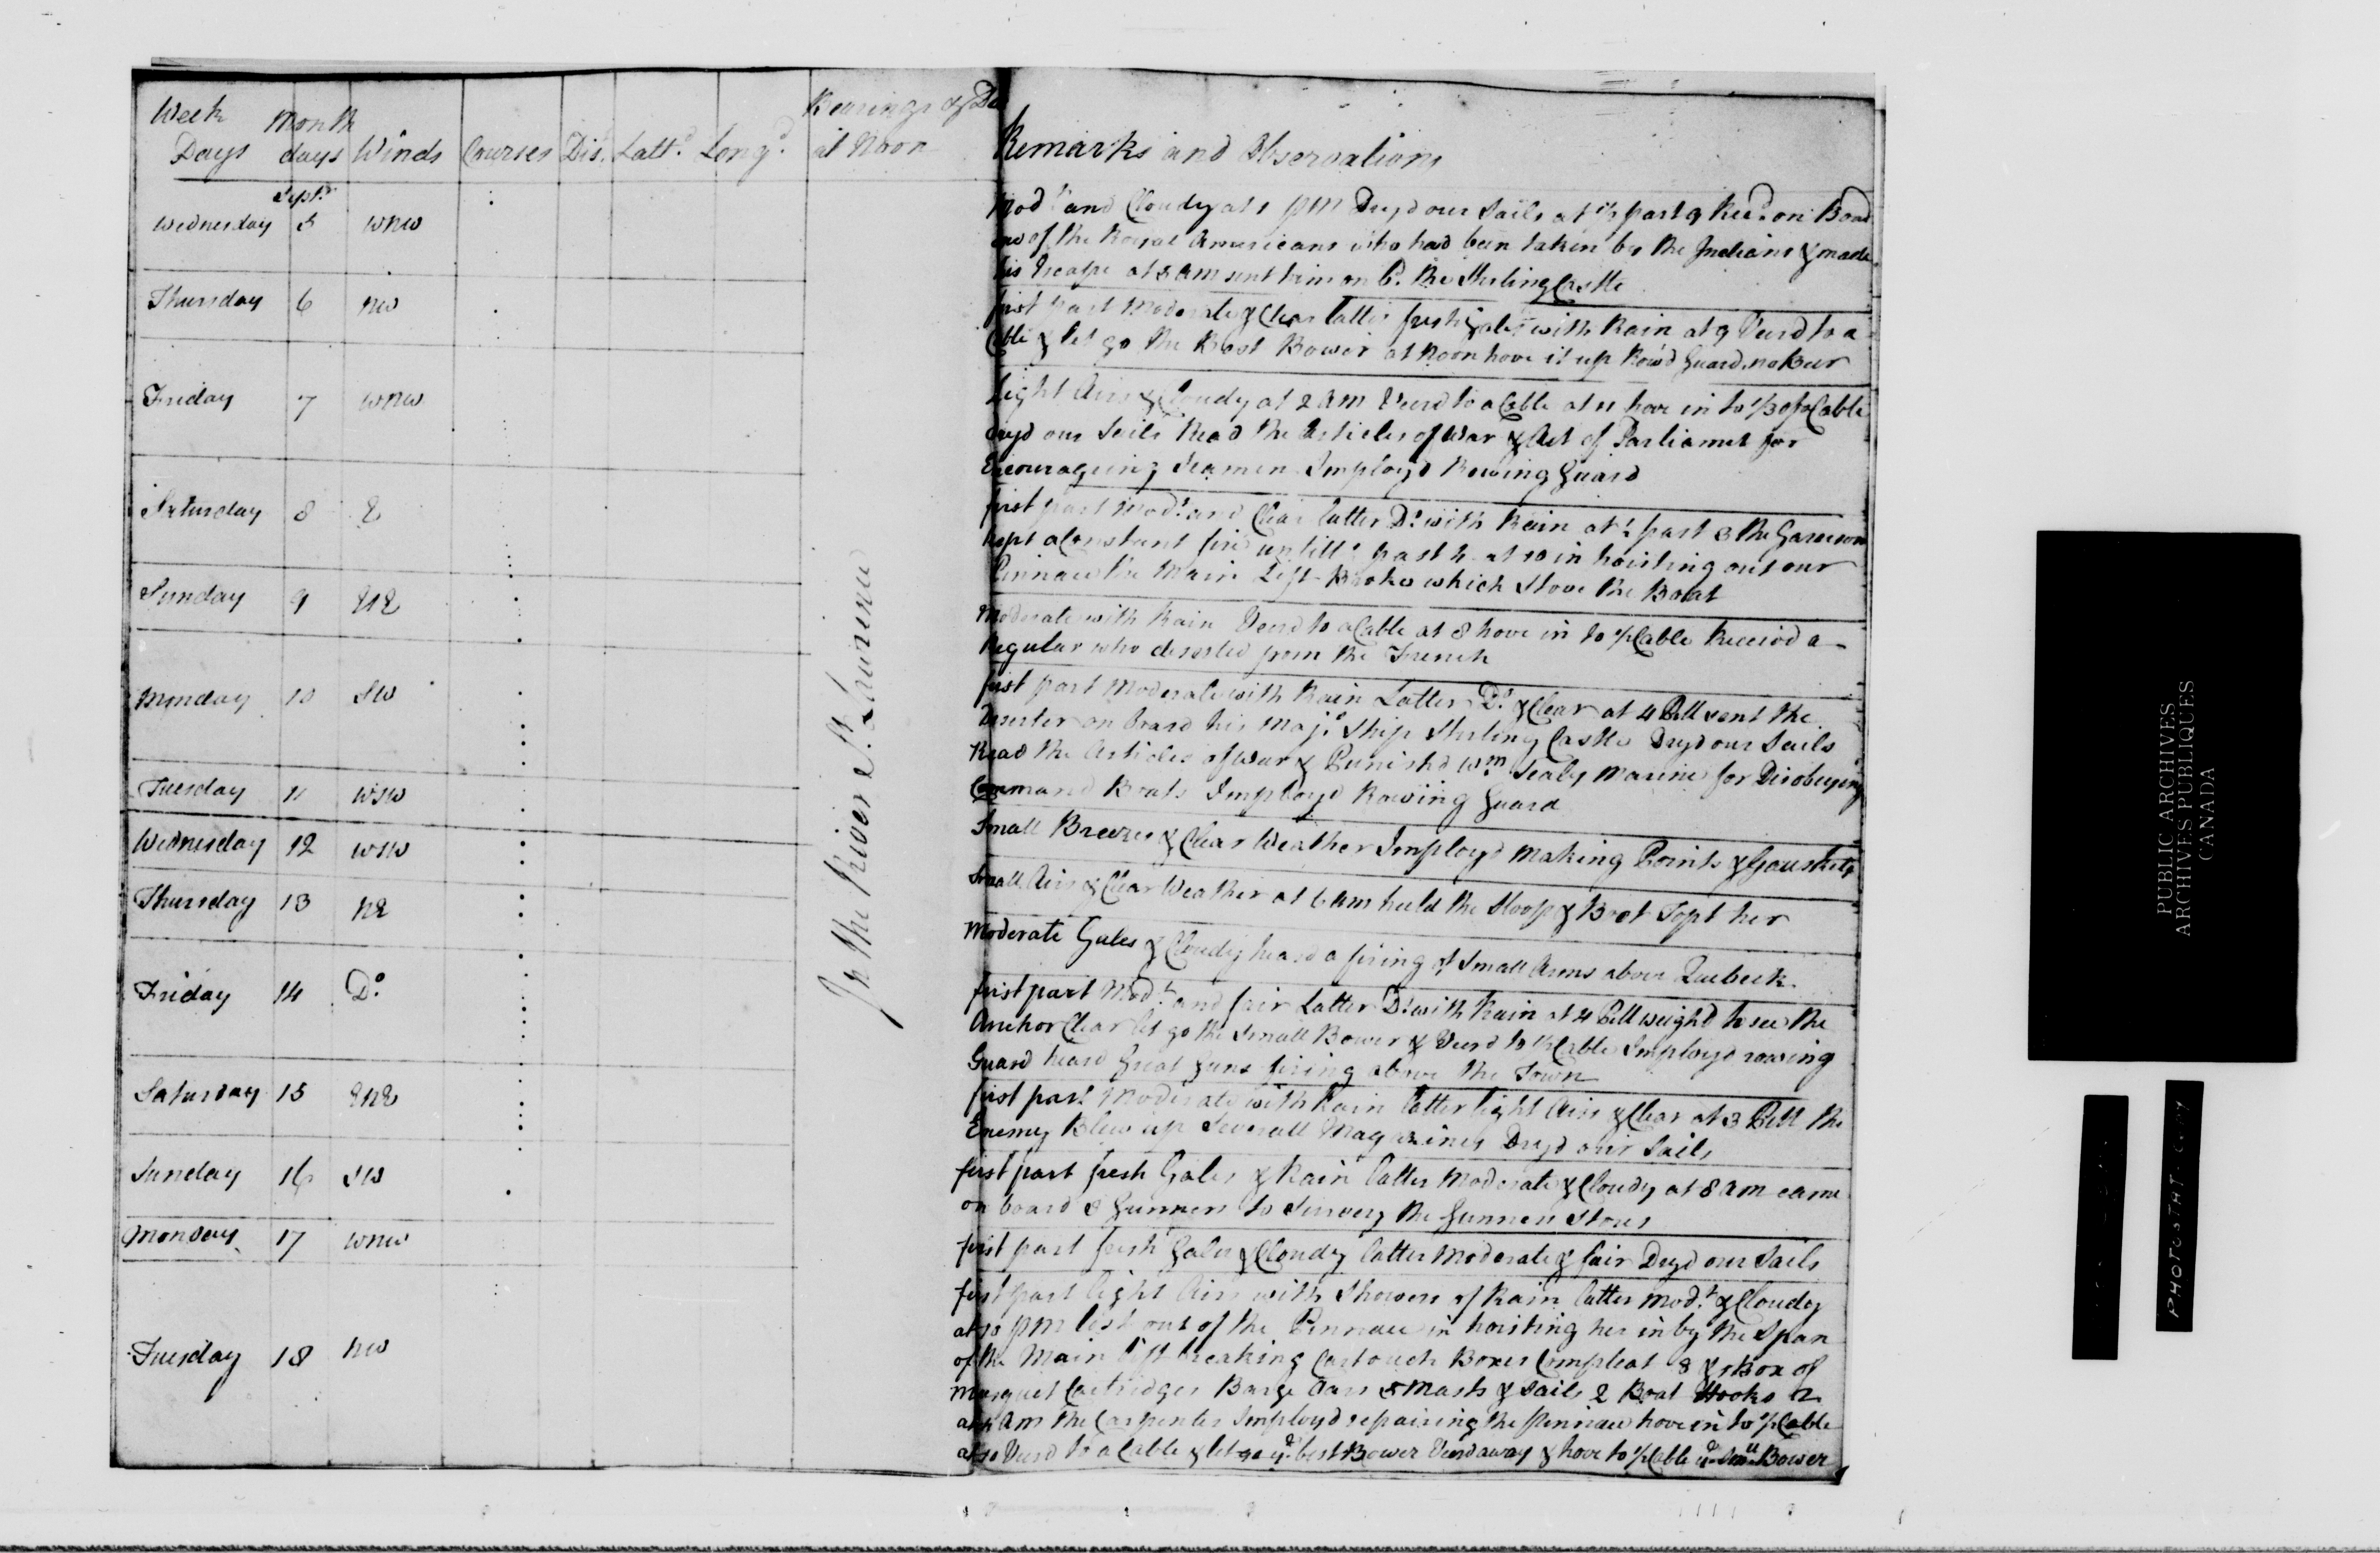 Week Days Month days Winds Courses Dis. Lattd. Longd. Bearings & Da at Noon Remarks and Observations
Sept.
Wednesday 5 WNW
Modt and Cloudy at 1 PM Dryd our Sails at ½ past 9 Recd. on Boad
one of the Royal Americans who had been taken by the Indians & made
his Escape at 8 AM sent him on B. the Sterling Castle
Thursday 6 NW
first part Moderate & Clear latter fresh Gales with Rain at 9 Veerd to a
Cable & let go the Best Bower at Noon hove it up Row'd Guard no Beer
Friday 7 WNW
Light Airs & Cloudy at 2 AM Veerd to a Cable at 11 hove in to 1/3 of a Cable
dryd our Sails Read the Articles of War & Act of Parliamet for
Encourageing Seamen Imployd Rowing Guard
Saturday 8 E
first part Modt. and Clear latter Do. with Rain at ½ past 3 the Garrison
kept a Constant fire untill ½ past 4 at 10 in hoisting out our
Pinnace the Main Lift Broke which Stove the Boat
Sunday 9 ENE
Moderate with Rain Veerd to a Cable at 8 hove in to ½ Cable Received a
Regular who deserted from the French
Monday 10 SW
first part Moderate with Rain Latter Do. & Clear at 4 PM sent the
Deserter on board his Majs. Ship Sterling Castle Dryd our Sails
Read the Articles of War & Punishd Wm. Sealy Marine for Disobeying
Command Boats Imployd Rowing Guard
Tuesday 11 WSW
Small Breezes & Clear Weather Imployd Making Points & Gauskets
Wednesday 12 WSW
Small Airs & Clear Weather at 6 AM heeld the Sloop & Boot Topt her
Thursday 13 NE
Moderate Gales & Cloudy heard a firing of Small Arms above Quebeck
Friday 14 Do.
first part Modt. and fair Latter Do. with Rain at 4 PM weighd to see the
Anchor Clear let go the Small Bower & Veerd to ½ Cable Imployd rowing
Guard heard Great Guns firing above the Town
Saturday 15 ENE
first part Moderate with Rain latter light Airs & Clear at 3 PM the
Enemy Blew up Severall Magazines Dryd our Sails
Sunday 16 SW
first part fresh Gales & Rain latter Moderate & Cloudy at 8 AM came
on board 3 Gunners to Survey the Gunners Stores
Monday 17 WNW
first part fresh Gales & Cloudy latter Moderate & fair Dryd our Sails
Tuesday 18 NW
first part light Airs with Showers of Rain latter Modt. & Cloudy
at 10 PM lost out of the Pinnace in hoisting her in by the Span
of the Main lift breaking Cartouch Boxes Compleat 8 & 1 Box of
Musquet Cartridges Barge Oars 5 Masts & Sails 2 Boat Hooks 2
AM the Carpenter Imployd repairing the Pinnace hove in to ½ Cable
at 10 Veerd to a Cable & let go ye. best Bower Veerd away & hove to ½ Cable ye. Small Bower
In the River St. Lawrence
PUBLIC ARCHIVES
ARCHIVES PUBLIQUES
CANADA
PHOTOSTAT COPY